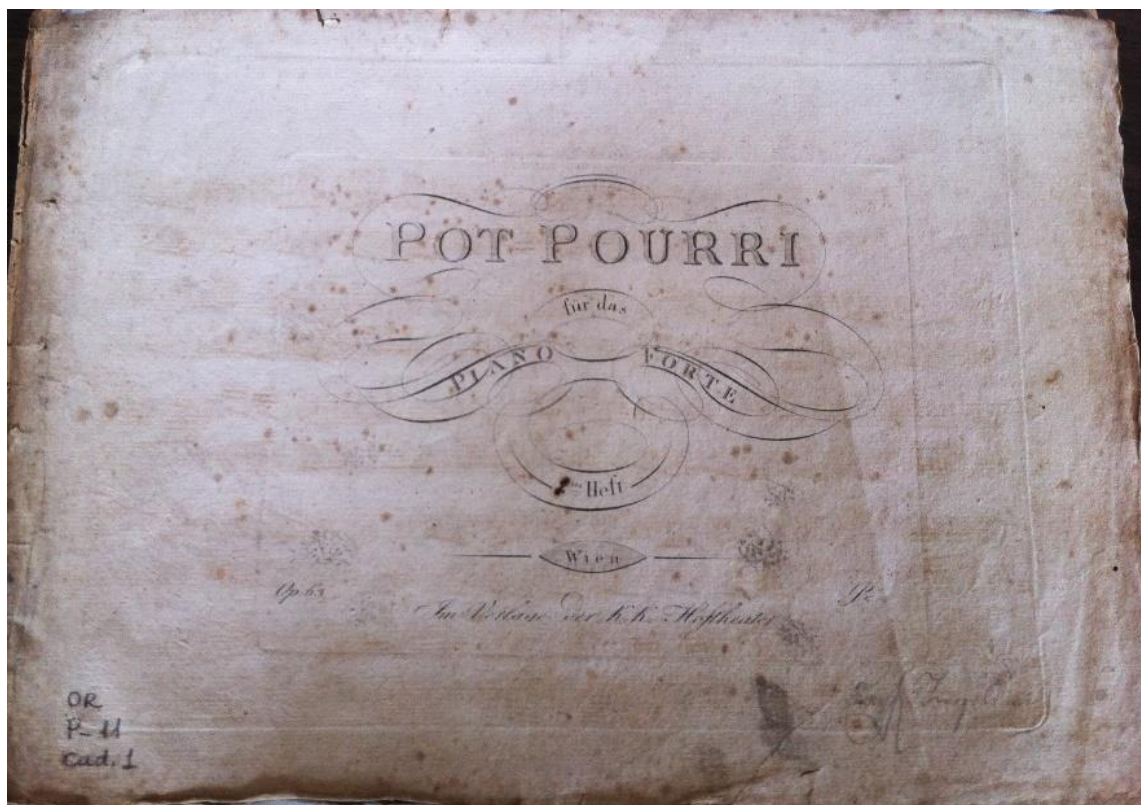 POT POURRI
für das
PIANO FORTE
Heft
Wien
Op. 63
Im Verlage der K. K. Hoftheater
OR
P-11
Cad. 1